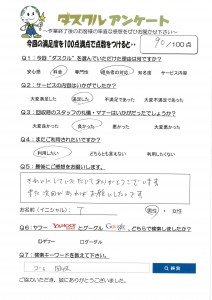 ダスクル アンケート
～作業終了後のお客様の率直な感想をぜひお聞かせ下さい～
今回の満足度を100点満点で点数をつけると・・ 90／100点
Q1：今回“ダスクル”を選んでいただけた理由は何ですか？
安心感 料金 専門性 担当者の対応 知名度 サービス内容
Q2：サービスの内容はいかがでしたか？
大変満足した 満足した 不満足であった 大変不満足であった
Q3：ご訪問時のスタッフの礼儀・マナーはいかがだったでしょうか？
大変良かった 良かった 悪かった 大変悪かった
Q4：またご利用されたいですか？
利用したい どちらとも言えない 利用したくない
Q5：最後にご感想をお願いします。
きれいにしていただいてありがとうございます
また次回があればお願いしたいです
お名前(イニシャル)： T 男性 ・ 女性
Q6：ヤフー YAHOO! とグーグル Google、どちらで検索しましたか？
ロヤフー ログーグル
Q7：検索キーワードを教えて下さい。
検索
ご協力いただき、誠にありがとうございました。